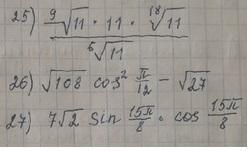 25) ⁹√11 · 11 · ¹⁸√11
⁶√11
26) √108 cos² π/12 - √27
27) 7√2 sin 15π/8 · cos 15π/8